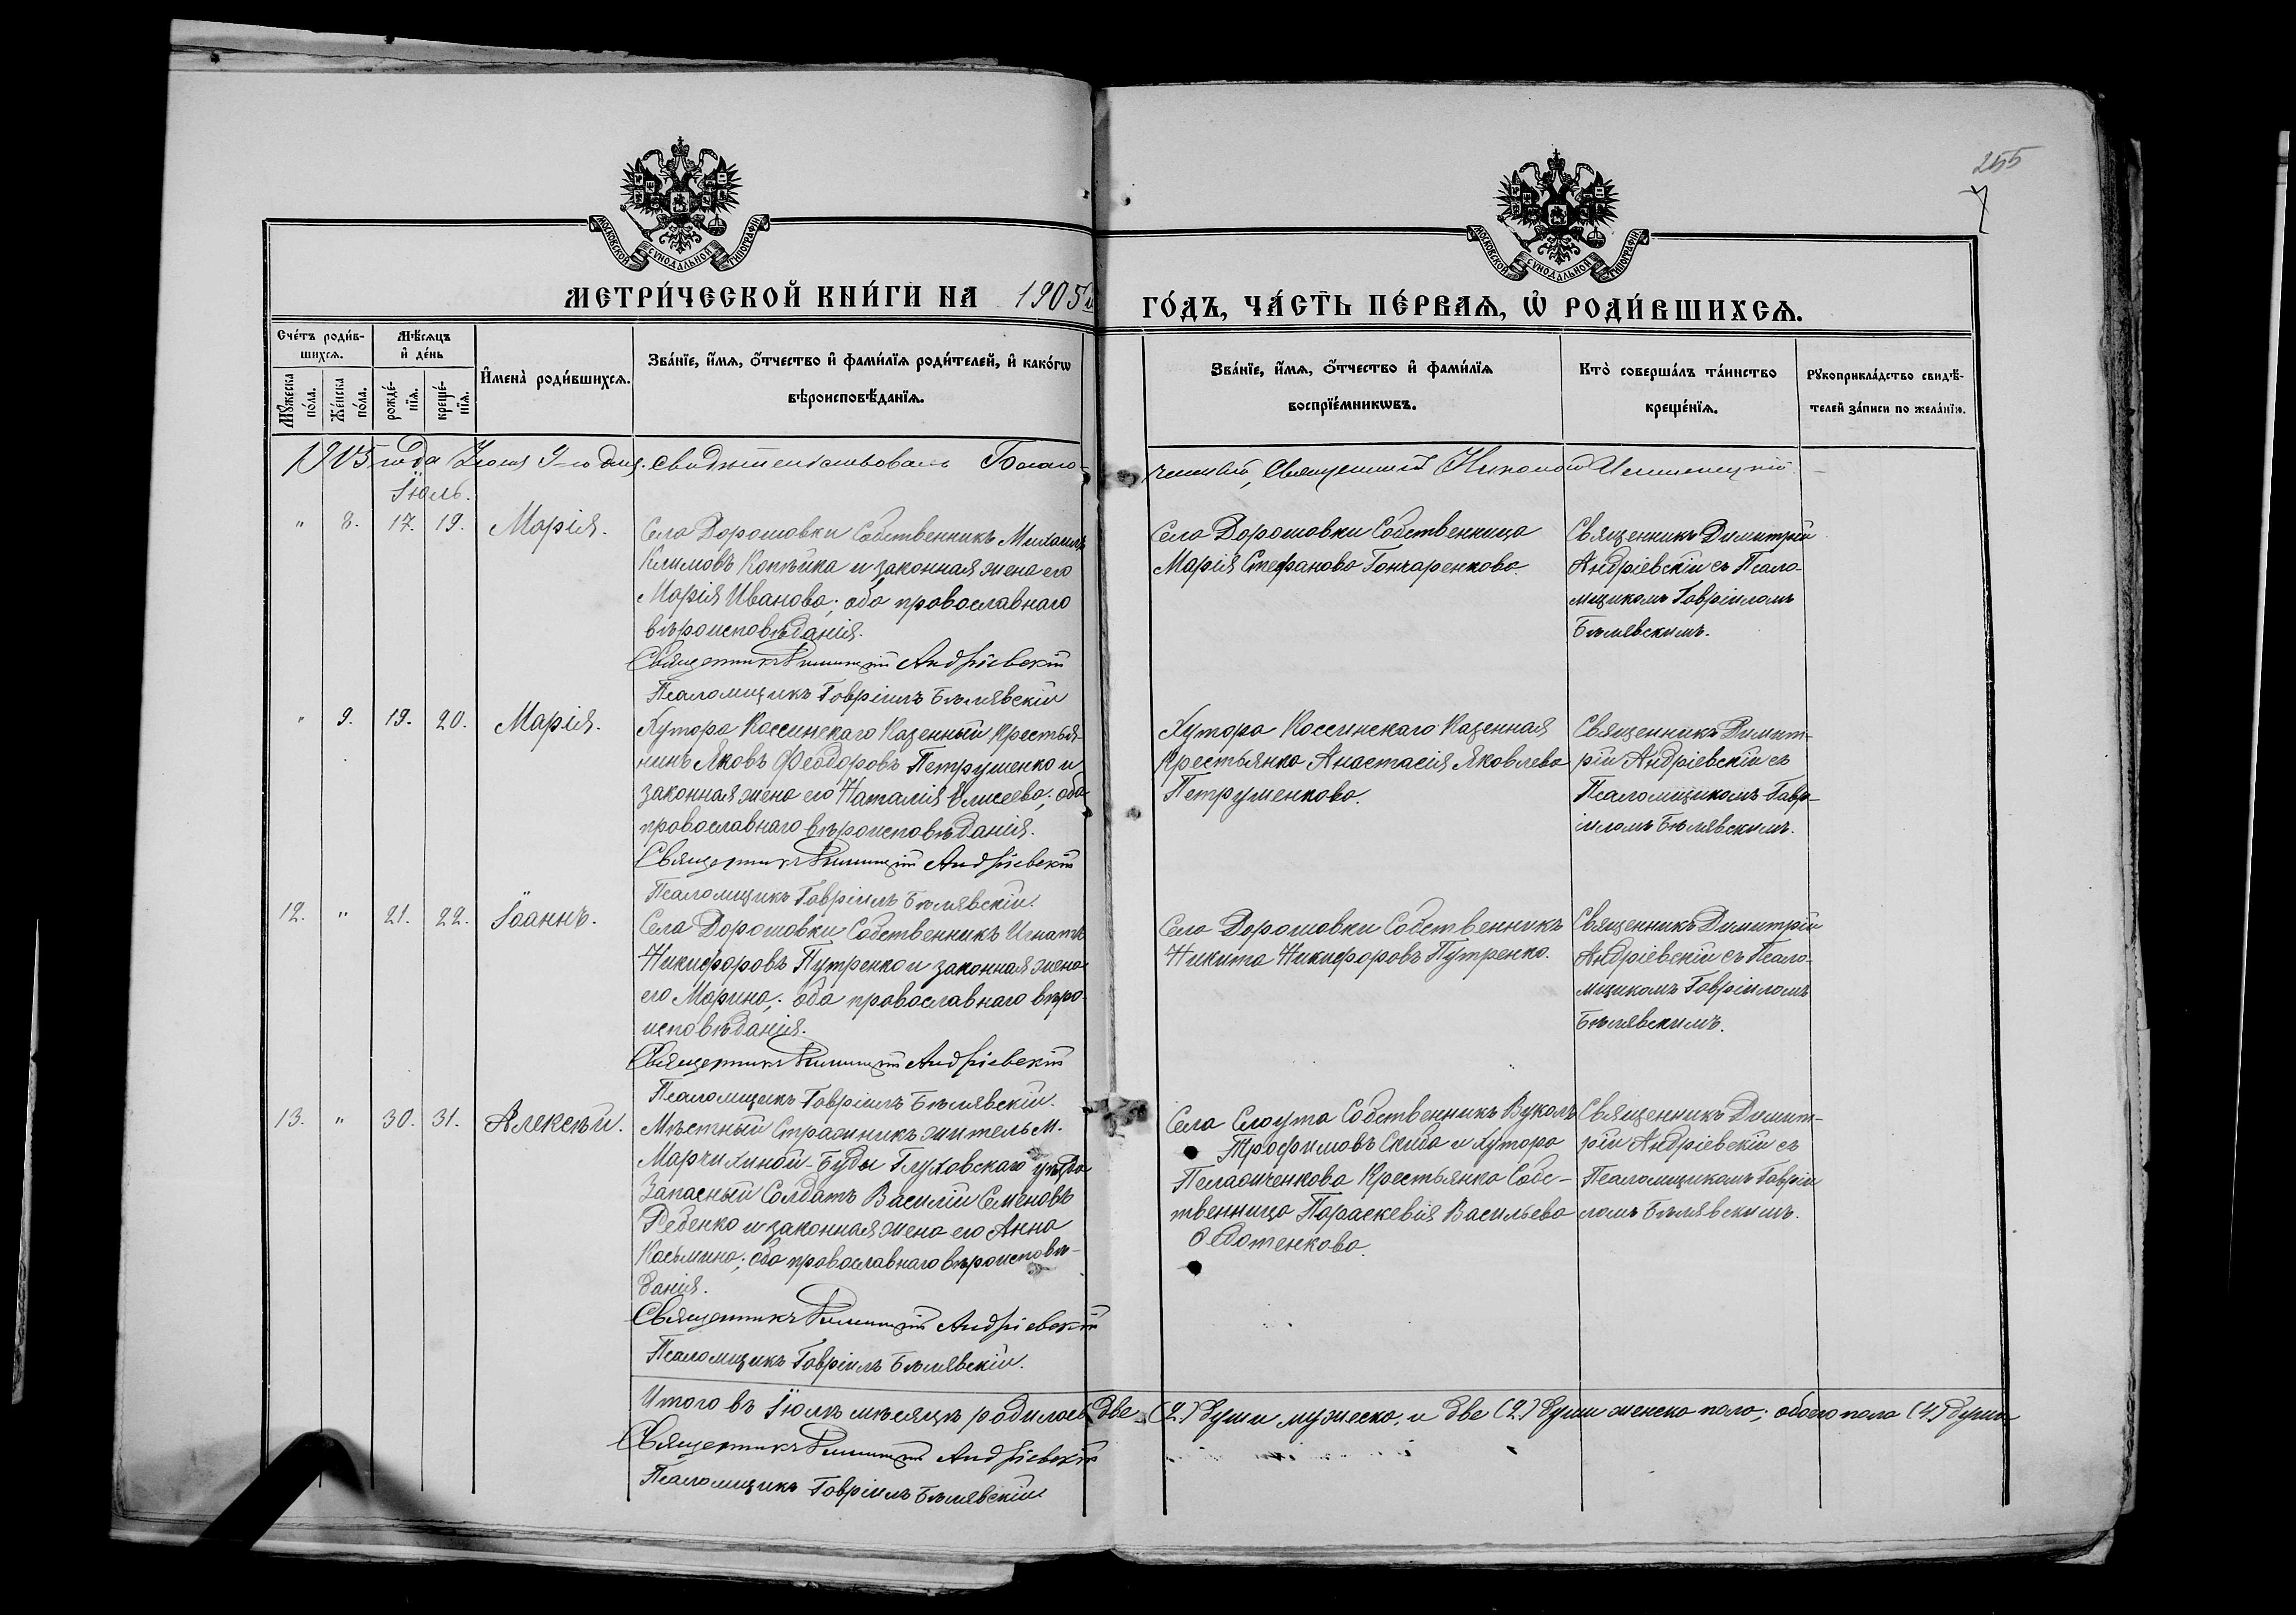 255
7
МОСКОВСКОЙ СѴНОДАЛЬНОЙ ТИПОГРАФІИ
МОСКОВСКОЙ СѴНОДАЛЬНОЙ ТИПОГРАФІИ
МЕТРИ́ЧЕСКОЙ КНИ́ГИ НА 1905й ГО́ДЪ, ЧА́СТЬ ПЕ́РВАѦ, Ѡ҆ РОДИ́ВШИХСѦ.
Сче́тъ роди́в-
шихсѧ.
Мѣ́сѧцъ
и҆ де́нь
Мꙋ́жеска
по́ла.
Же́нска
по́ла.
рожде́-
нїѧ.
креще́-
нїѧ.
И҆мена̀ роди́вшихсѧ.
Зва́нїе, и҆́мѧ, ѻ҆́тчество и҆ фами́лїѧ роди́телей, и҆ како́гѡ
вѣроисповѣ́данїѧ.
Зва́нїе, и҆́мѧ, ѻ҆́тчество и҆ фами́лїѧ
воспрїе́мникѡвъ.
Кто̀ соверша́лъ та́инство
креще́нїѧ.
Рꙋкоприкла́дство свидѣ́-
телей за́писи по жела́нїю.
1905 года Іюля 9-го дня. свидѣтельствовалъ Благо-
чинный, Священникъ Николай
Іюль.
" 8. 17. 19. Марія.
Села Дорошовки Собственникъ Михаилъ
Климовъ Копѣйка и законная жена его
Марія Иванова; оба православнаго
вѣроисповѣданія.
Священникъ Димитрій Андріевскій
Псаломщикъ Гавріилъ Бѣлявскій
Села Дорошовки Собственница
Марія Стефанова Гончаренкова.
Священникъ Димитрій
Андріевскій съ Псало-
мщикомъ Гавріиломъ
Бѣлявскимъ.
" 9. 19. 20. Марія.
Хутора Коссинскаго Казенный Крестья-
нинъ Яковъ Феодоровъ Петрушенко и
законная жена его Наталія Елисеева; оба
православнаго вѣроисповѣданія.
Священникъ Димитрій Андріевскій
Псаломщикъ Гавріилъ Бѣлявскій.
Хутора Коссинскаго Казенная
Крестьянка Анастасія Яковлева
Петрушенкова.
Священникъ Димит-
рій Андріевскій съ
Псаломщикомъ Гавр-
іиломъ Бѣлявскимъ.
12. " 21. 22. Іоаннъ.
Села Дорошовки Собственникъ Игнатъ
Никифоровъ Путренко и законная жена
его Марина; оба православнаго вѣро-
исповѣданія.
Священникъ Димитрій Андріевскій
Псаломщикъ Гавріилъ Бѣлявскій.
Села Дорошовки Собственникъ
Никита Никифоровъ Путренко.
Священникъ Димитрій
Андріевскій съ Псало-
мщикомъ Гавріиломъ
Бѣлявскимъ.
13. " 30. 31. Алексѣй.
Мѣстный Стражникъ житель м.
Марчихиной-Буды Глуховскаго уѣзда
Запасный Солдатъ Василій Семеновъ
Ребенко и законная жена его Анна
Косьмина; оба православнаго вѣроисповѣ-
данія.
Священникъ Димитрій Андріевскій
Псаломщикъ Гавріилъ Бѣлявскій.
Села Слоута Собственникъ Вуколъ
Трофимовъ Скиба и хутора
Крестьянка Собс-
твенница Параскевія Васильева
Ѳедотенкова.
Священникъ Димит-
рій Андріевскій съ
Псаломщикомъ Гавріи
ломъ Бѣлявскимъ.
Итого въ Іюлѣ мѣсяцѣ родилось две (2.) души мужеска, и две (2.) души женска пола; обоего пола (4) души
Священникъ Димитрій Андріевскій
Псаломщикъ Гавріилъ Бѣлявскій